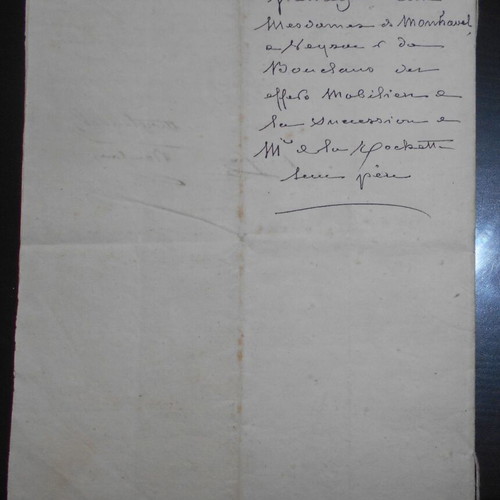 Mesdames de Montravel,
de Veysac & de
Bouclans des
effets Mobiliers de
la Succession de
Mr de la Rochette
leur père